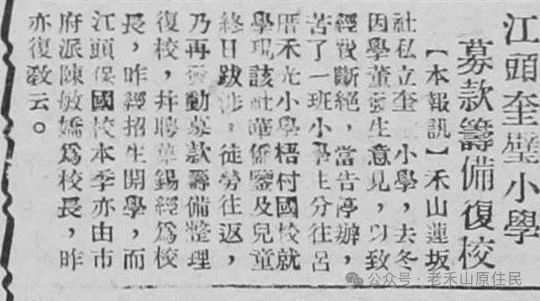 江頭奎璧小學
募款籌備復校
【本報訊】禾山蓮坂
社私立奎小學，去冬
因學董發生意見，以致
經費斷絕，當告停辦，
苦了一班小學生分往呂
厝禾光小學梧村國校就
學現該社華僑鑒及兒童
終日跋涉，徒勞往返，
乃再發動募款籌備整理
復校，幷聘葉錫經爲校
長，昨經招生開學，而
江頭保國校本季亦由市
府派陳敏嬌爲校長，昨
亦復敎云。
公众号·老禾山原住民